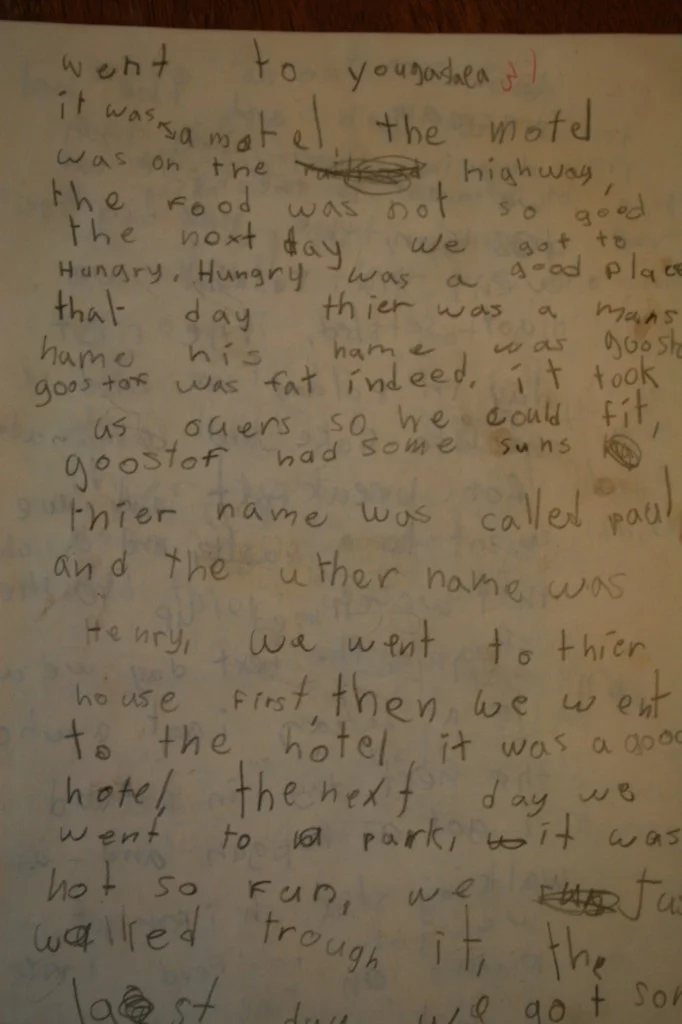 went to yougaslaea 31
it was a motel, the motel
was on the highway,
the Food was not so good
the next day we got to
Hungry, Hungry was a good place
that day thier was a mans
name his name was goosh
goostof was fat indeed. it took
us ouers so he could fit,
goostof had some suns
thier name was called paul,
and the uther name was
Henry, we went to thier
house First, then we went
to the hotel, it was a good
hotel, the next day we
went to a park, it was
not so Fun, we ju
walked trough it, the
last day we got som